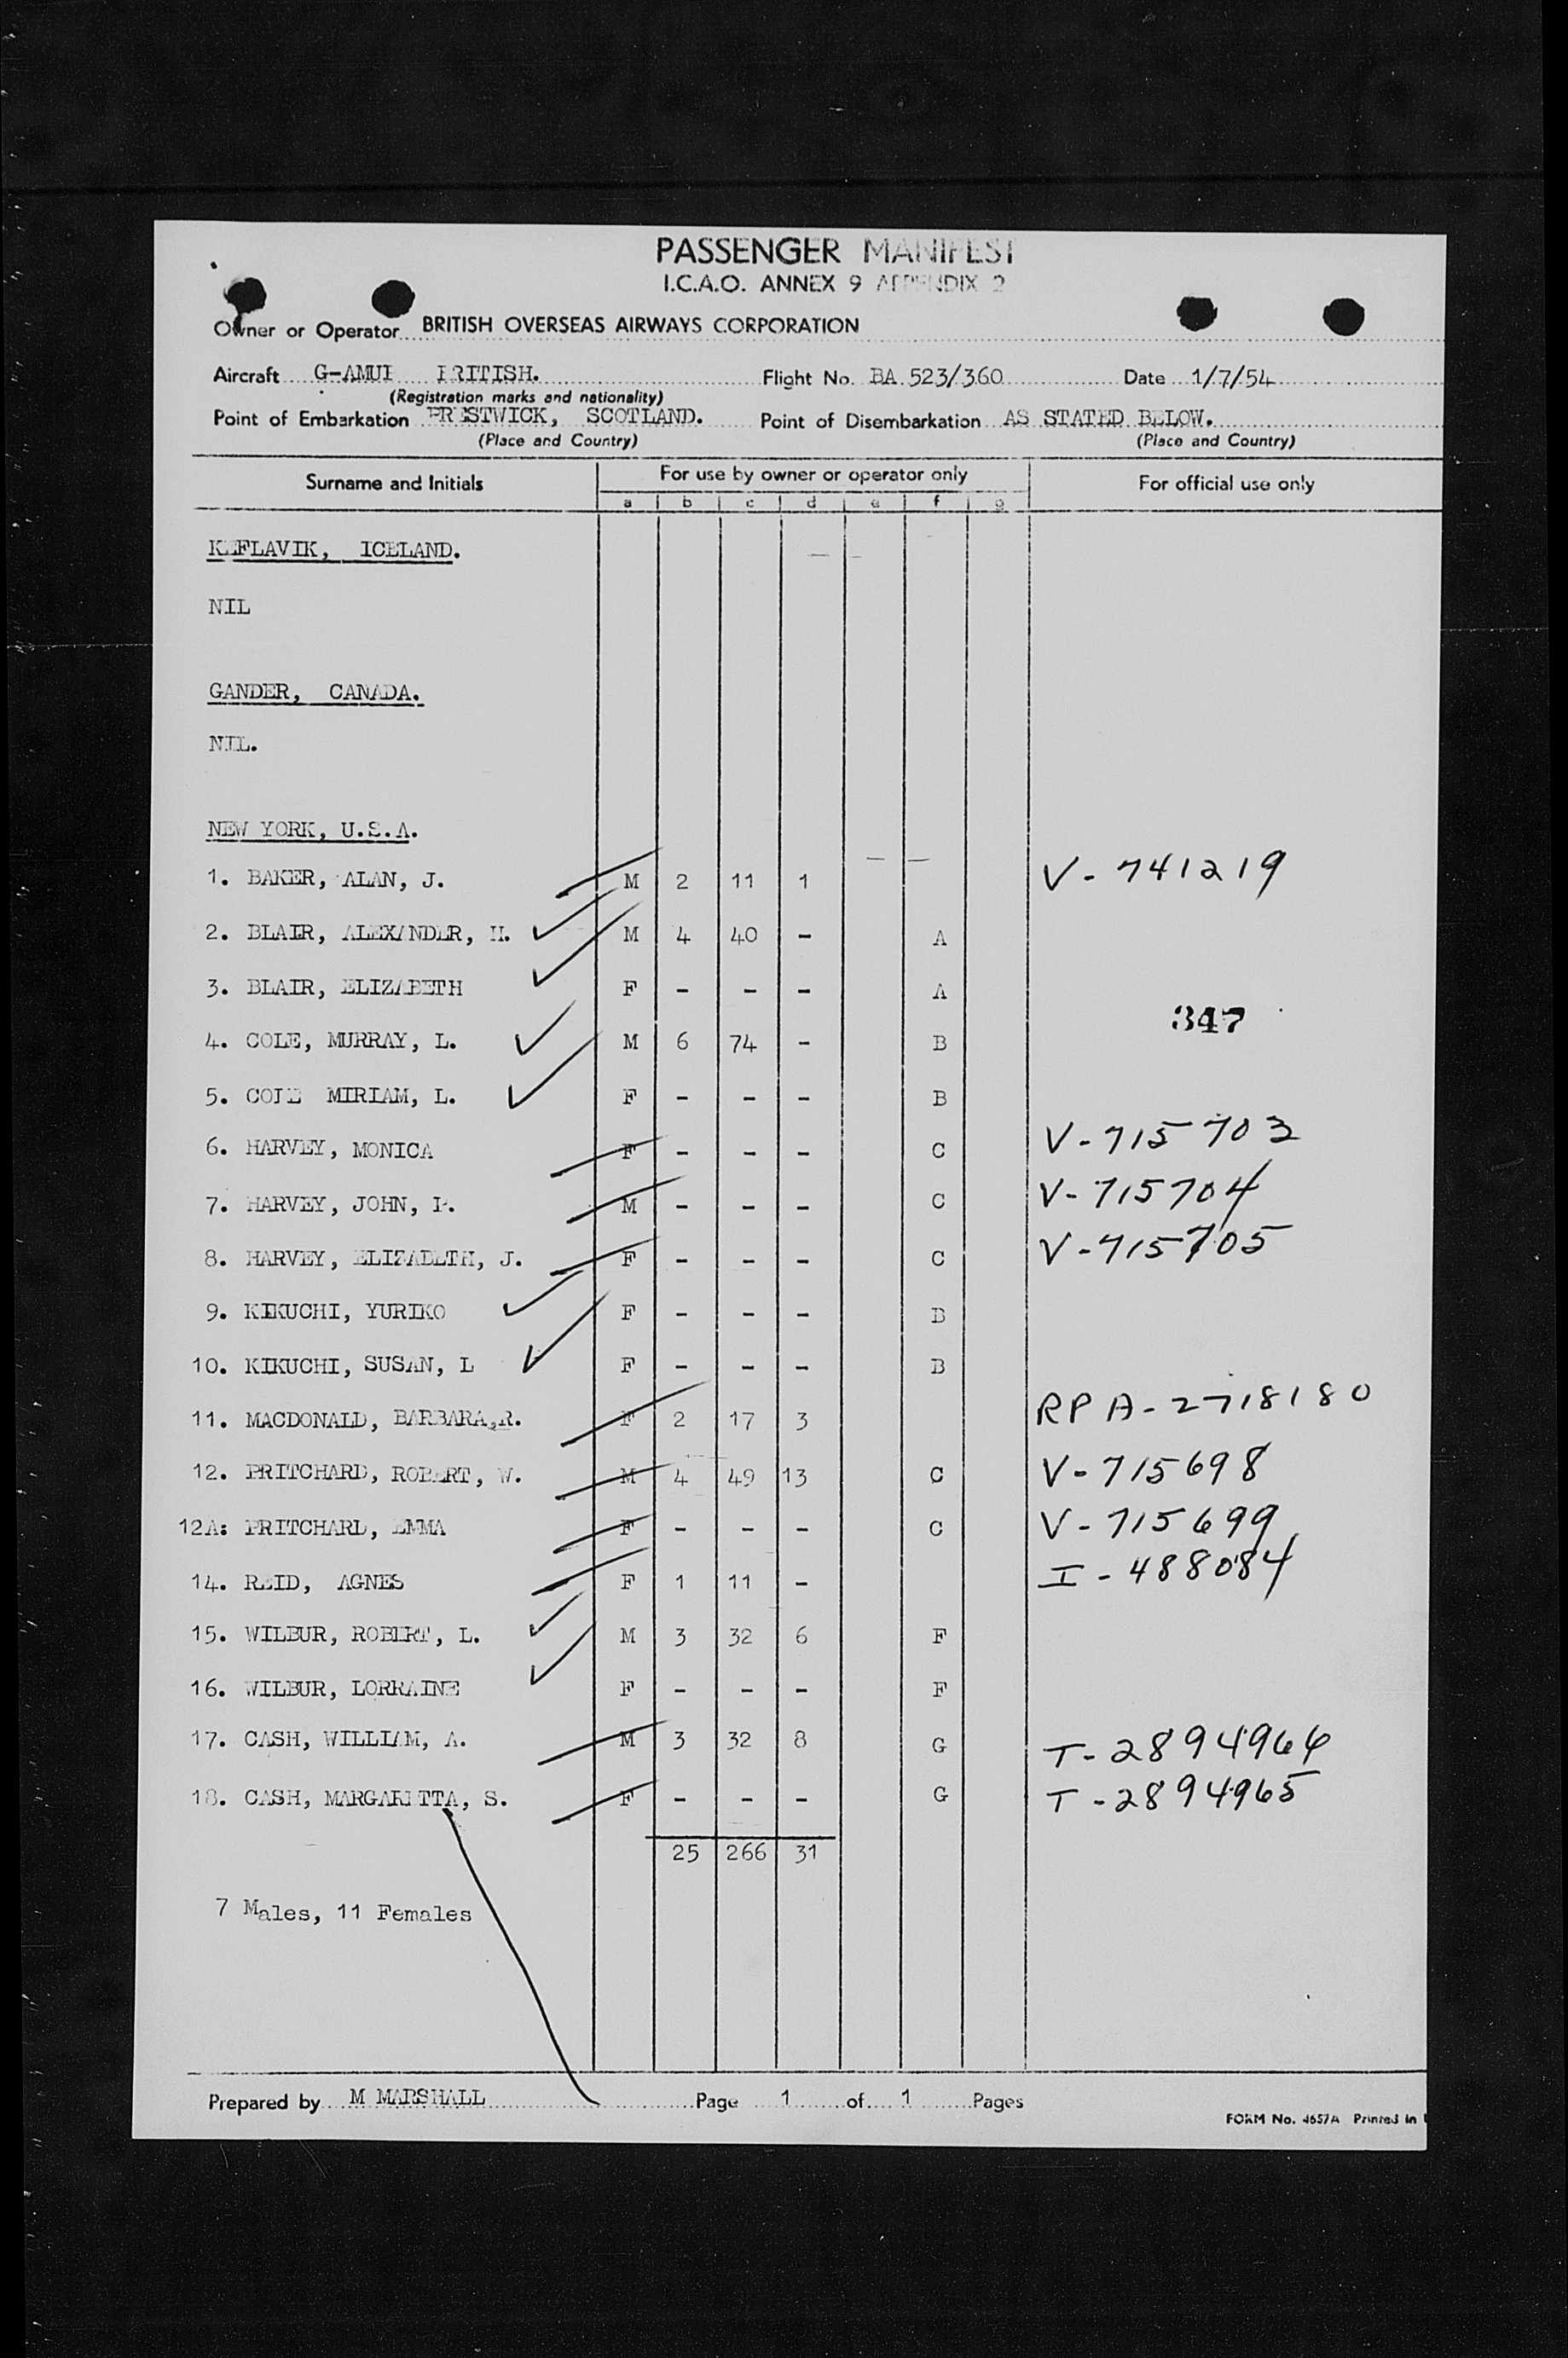 PASSENGER MANIFEST
I.C.A.O. ANNEX 9 APPENDIX 2
Owner or Operator BRITISH OVERSEAS AIRWAYS CORPORATION
Aircraft BRITISH. Flight No. BA 523/360 Date 1/7/54
(Registration marks and nationality)
Point of Embarkation PRESTWICK, SCOTLAND. Point of Disembarkation AS STATED BELOW.
(Place and Country) (Place and Country)
Surname and Initials For use by owner or operator only For official use only
a b c d e f g
KEFLAVIK, ICELAND.
NIL
GANDER, CANADA.
NIL.
NEW YORK, U.S.A.
1. BAKER, ALAN, J. M 2 11 1 V-741219
2. BLAIR, ALEXANDER, H. M 4 40 - A
3. BLAIR, ELIZABETH F - - - A
347
4. COLE, MURRAY, L. M 6 74 - B
5. COLE MIRIAM, L. F - - - B
6. HARVEY, MONICA F - - - C V-715703
7. HARVEY, JOHN, M - - - C V-715704
8. HARVEY, ELIZABETH, J. F - - - C V-715705
9. KIKUCHI, YURIKO F - - - B
10. KIKUCHI, SUSAN, L F - - - B
11. MACDONALD, BARBARA,R. F 2 17 3 RPA-2718180
12. PRITCHARD, ROBERT, W. M 4 49 13 C V-715698
12A: PRITCHARD, EMMA F - - - C V-715699
14. REID, AGNES F 1 11 - I-488084
15. WILBUR, ROBERT, L. M 3 32 6 F
16. WILBUR, LORRAINE F - - - F
17. CASH, WILLIAM, A. M 3 32 8 G T-2894964
18. CASH, MARGARETTA, S. F - - - G T-2894965
25 266 31
7 Males, 11 Females
Prepared by M MARSHALL Page 1 of 1 Pages
FORM No. 4657A Printed in